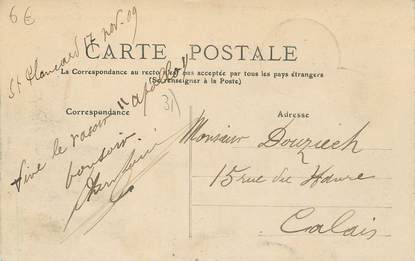 6€
St Plancard 17 nov. 09
CARTE POSTALE
La Correspondance au recto n'est pas acceptée par tous les pays étrangers
(Se renseigner à la Poste)
Correspondance
Adresse
(31)
Vive le rasoir "apollo"
bonsoir
Monsieur Douziech
15 rue du Havre
Calais